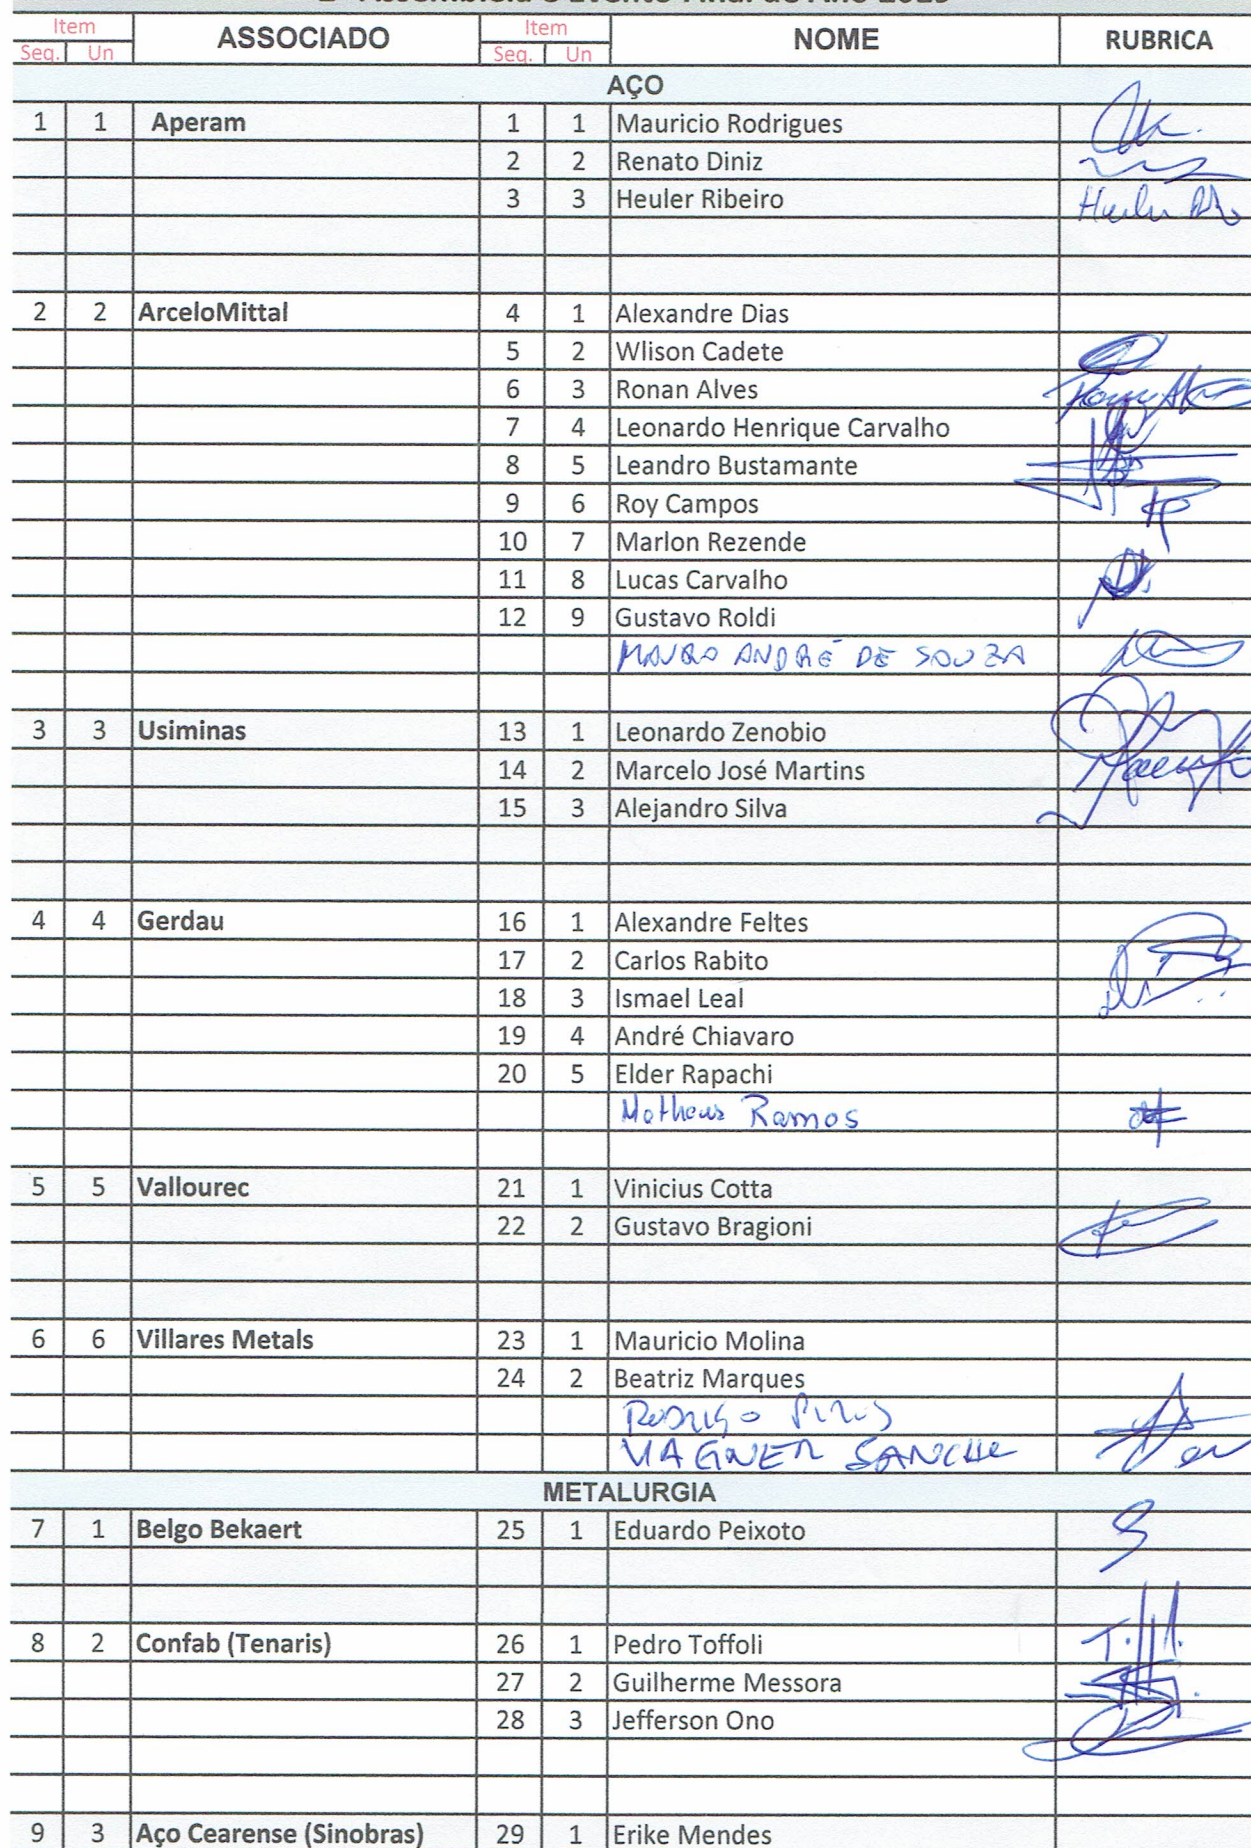 Item ASSOCIADO Item NOME RUBRICA
Seq. Un Seq. Un
AÇO
1 1 Aperam 1 1 Mauricio Rodrigues
2 2 Renato Diniz
3 3 Heuler Ribeiro
2 2 ArceloMittal 4 1 Alexandre Dias
5 2 Wlison Cadete
6 3 Ronan Alves
7 4 Leonardo Henrique Carvalho
8 5 Leandro Bustamante
9 6 Roy Campos
10 7 Marlon Rezende
11 8 Lucas Carvalho
12 9 Gustavo Roldi
MAURO ANDRÉ DE SOUZA
3 3 Usiminas 13 1 Leonardo Zenobio
14 2 Marcelo José Martins
15 3 Alejandro Silva
4 4 Gerdau 16 1 Alexandre Feltes
17 2 Carlos Rabito
18 3 Ismael Leal
19 4 André Chiavaro
20 5 Elder Rapachi
Matheus Ramos
5 5 Vallourec 21 1 Vinicius Cotta
22 2 Gustavo Bragioni
6 6 Villares Metals 23 1 Mauricio Molina
24 2 Beatriz Marques
RODRIGO
VAGNER SANCHE
METALURGIA
7 1 Belgo Bekaert 25 1 Eduardo Peixoto
8 2 Confab (Tenaris) 26 1 Pedro Toffoli
27 2 Guilherme Messora
28 3 Jefferson Ono
9 3 Aço Cearense (Sinobras) 29 1 Erike Mendes